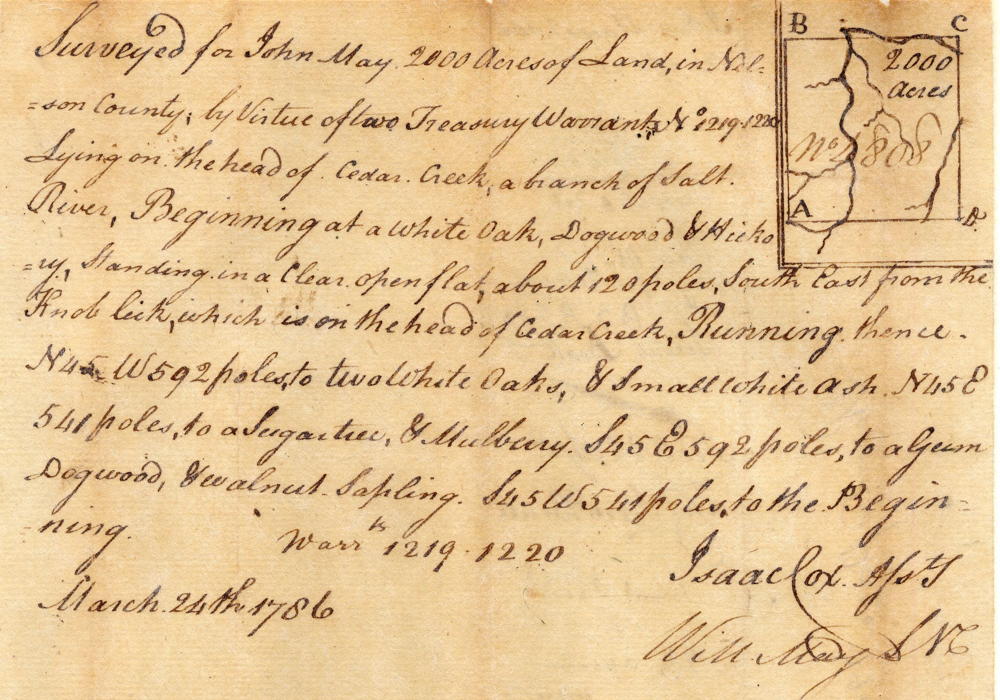 Surveyed for John May 2000 Acres of Land, in Nel=
=son County, by Virtue of two Treasury Warrants No 1219.1220
Lying on the head of Cedar Creek, a branch of Salt.
River, Beginning at a White Oak, Dogwood & Hicko
=ry, Standing in a Clear open flat, about 120 poles, South East from the
Knob lick, which is on the head of Cedar Creek, Running thence.
N45 W592 poles, to two White Oaks, & Small White ash. N45E
541 poles, to a Sugartree, & Mulberry. S45E 592 poles, to a Gum
Dogwood, & walnut Sapling. S45W 541 poles, to the Begin=
=ning.
Warrts 1219.1220
March 24th 1786
Isaac Cox. Asst S
Will May SNC
B
C
2000
Acres
No 1808
A
D